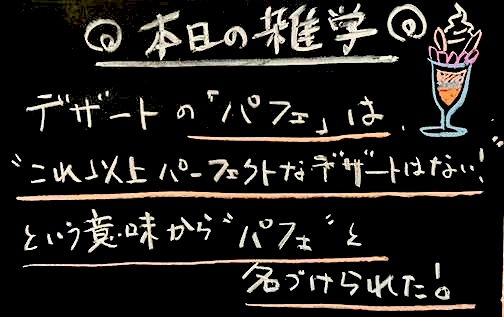 本日の雑学
デザートの「パフェ」は
"これ以上パーフェクトなデザートはない!
という意味から"パフェ"と
名づけられた!